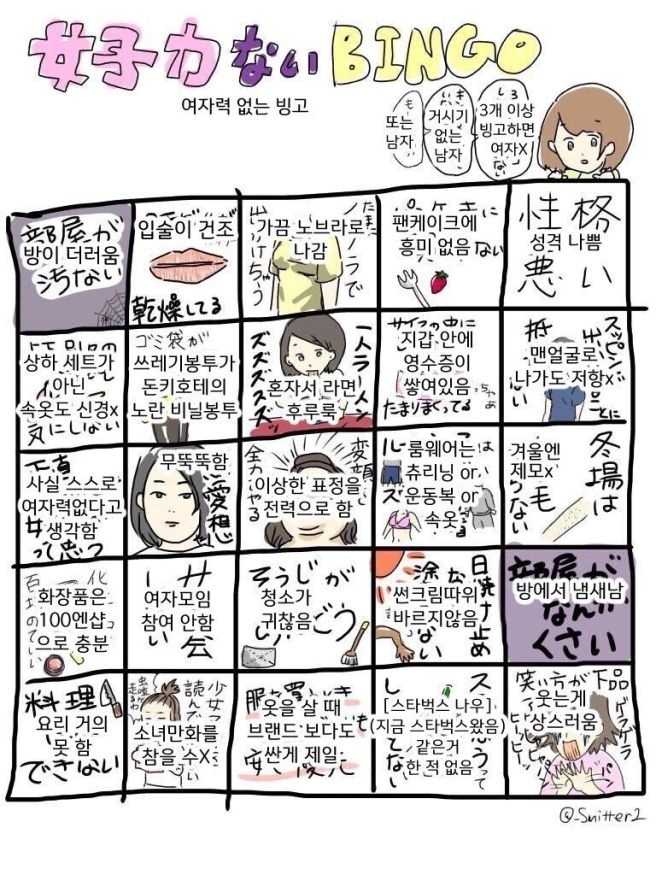 女子力ないBINGO
여자력 없는 빙고
3개 이상
빙고하면
여자X
거시기
없는
남자
또는
남자
部屋が
방이 더러움
汚ない
입술이 건조
乾燥してる
가끔 노브라로
나감
팬케이크에
흥미 없음
ない
性格
성격 나쁨
悪い
상하 세트가
아닌
속옷도 신경x
気にしない
ゴミ袋が
쓰레기봉투가
돈키호테의
노란 비닐봉투
一人ラーメン
혼자서 라면
후루룩
ズズズズズ
지갑 안에
영수증이
쌓여있음
たまりまくってる
スッピン
맨얼굴로
나가도 저항x
사실 스스로
여자력없다고
생각함
って思う
무뚝뚝함
愛想
変顔
이상한 표정을
전력으로 함
全力でやる
룸웨어는
츄리닝 or
운동복 or
속옷
冬場は
겨울엔
제모x
毛
らない
화장품은
100엔샵
으로 충분
여자모임
참여 안함
会
そうじが
청소가
귀찮음
日焼け止め
썬크림따위
바르지않음
塗らない
部屋が
방에서 냄새남
なんか
くさい
料理
요리 거의
못 함
できない
소녀만화를
참을 수X
옷을 살 때
브랜드 보다도
싼게 제일
[스타벅스 나우]
(지금 스타벅스왔음)
같은거
한 적 없음
笑い方が下品
웃는게
상스러움
ゲラゲラ
@_Snitter2